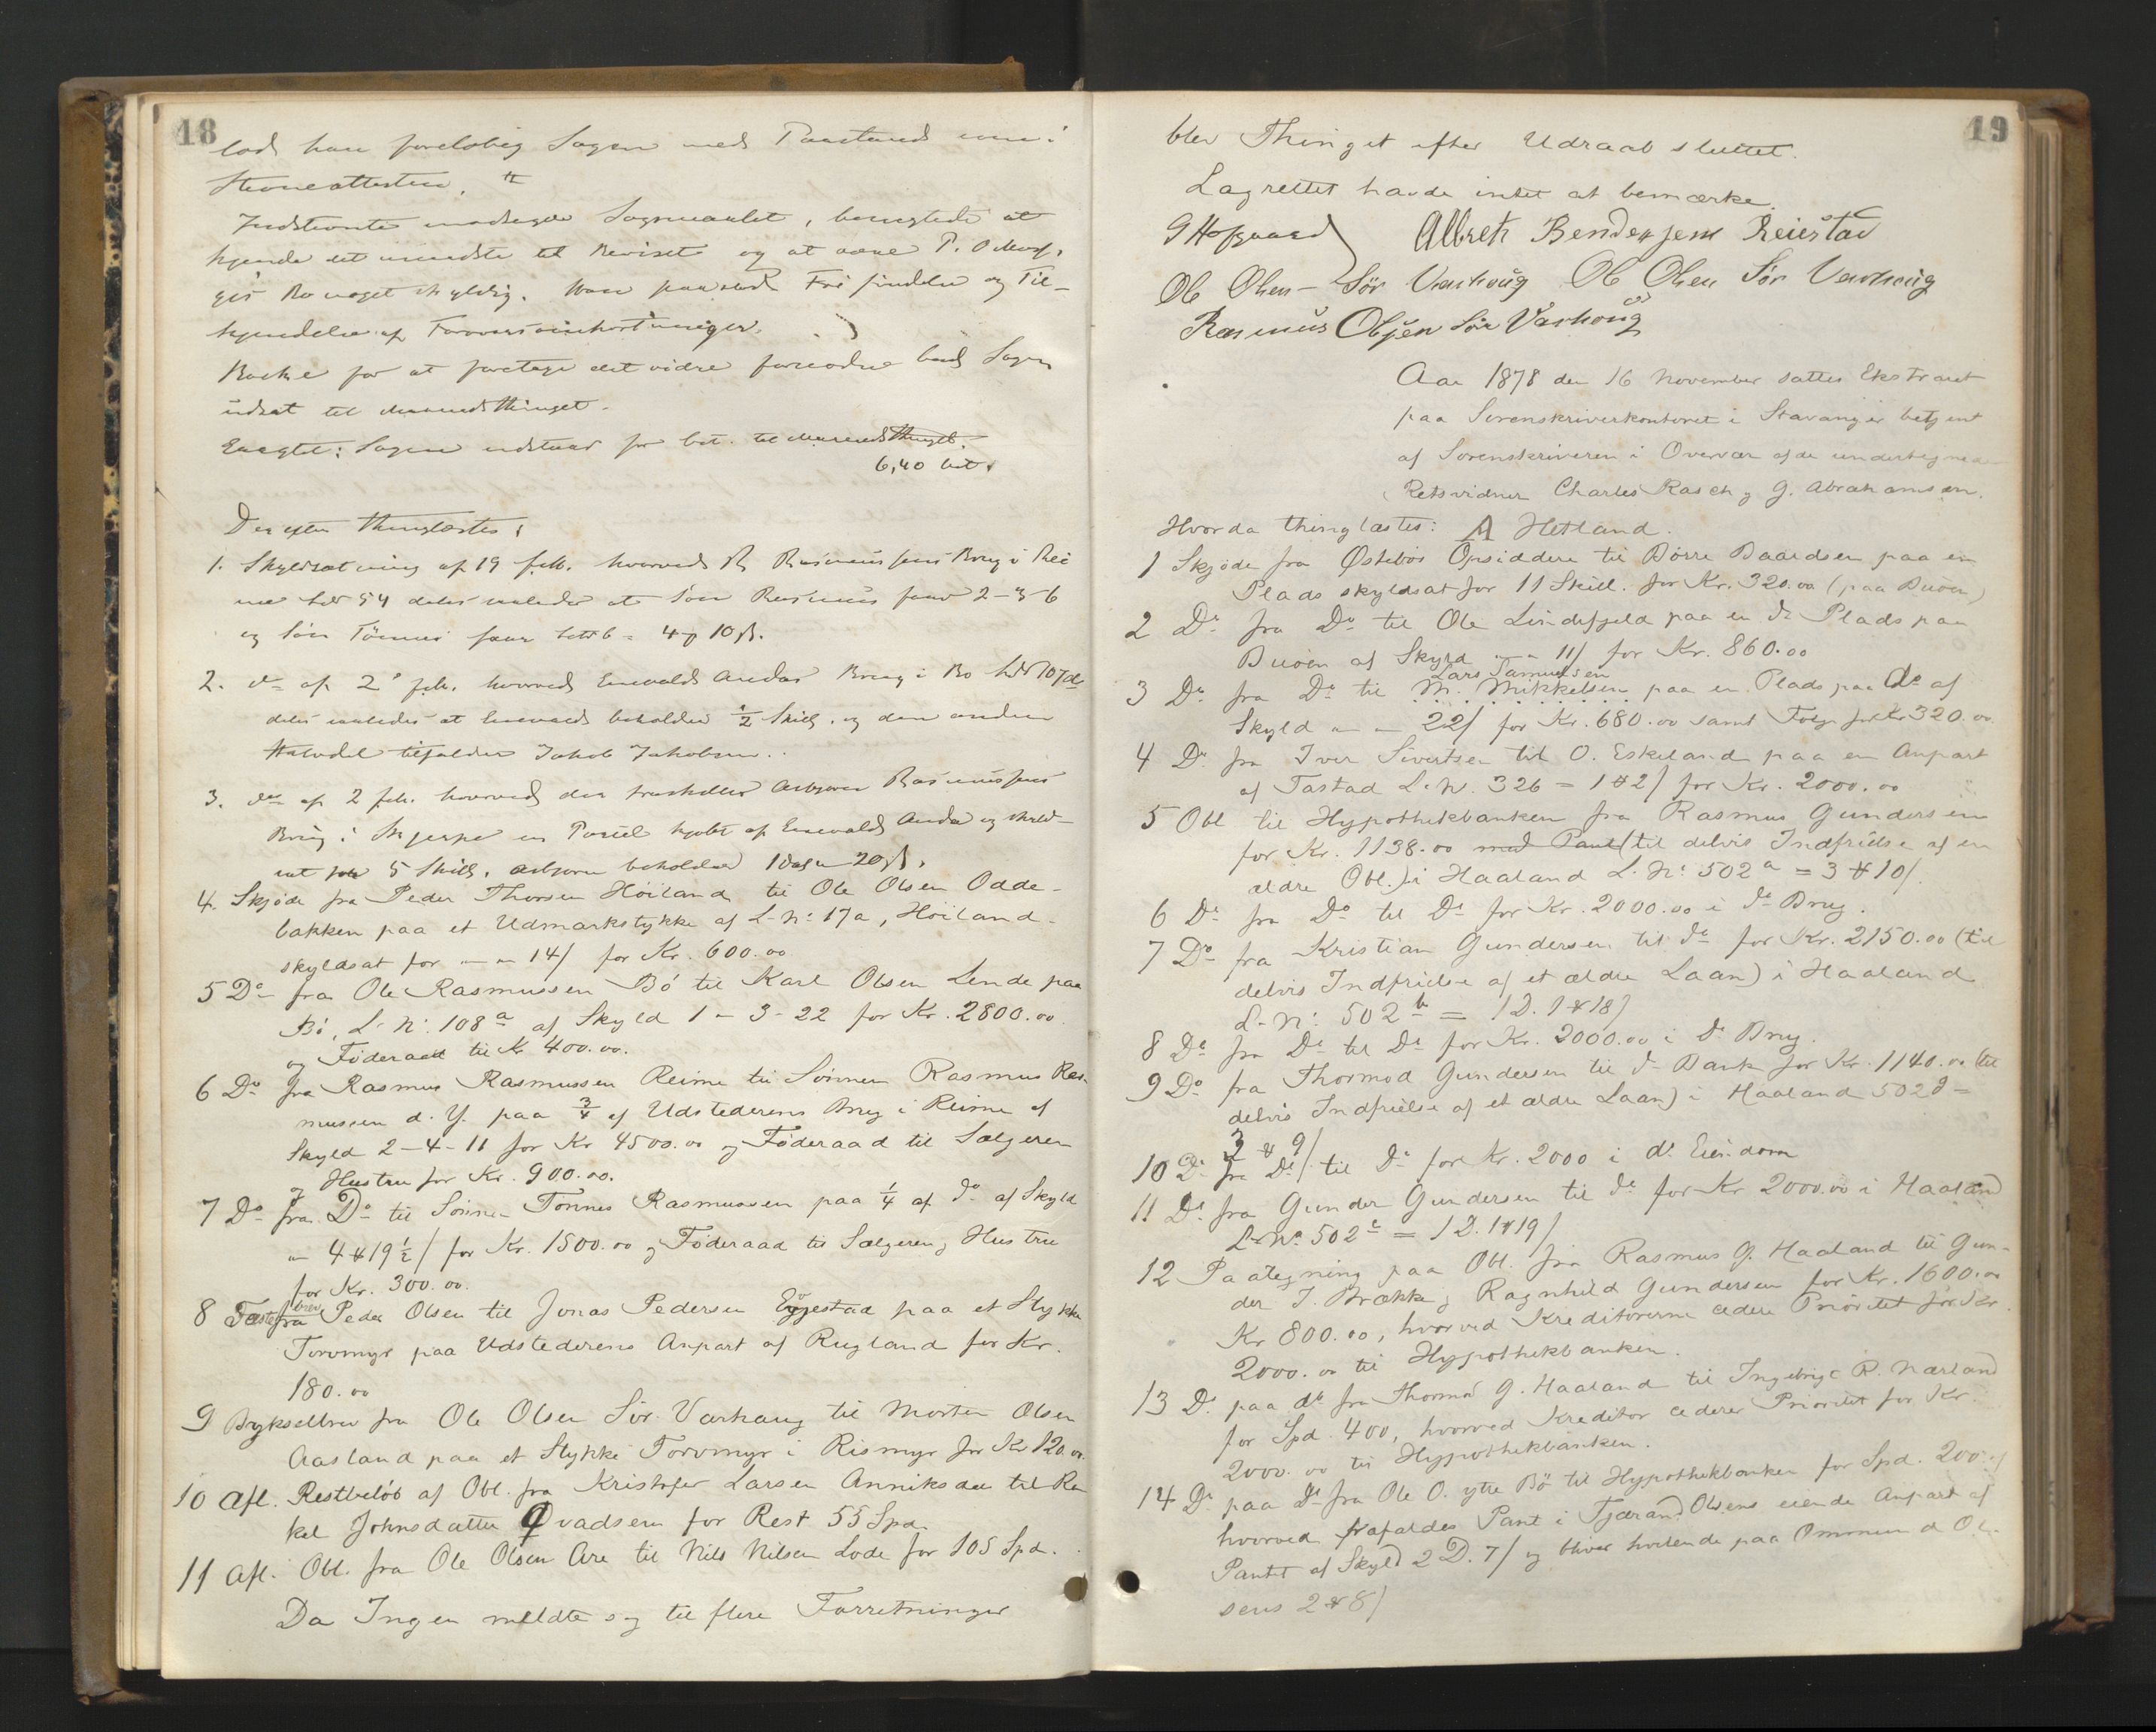 18
lod han foreløbig Sagen med Paastand som i
Stevneattesten.
Indstevnte modsagde Søgsmaalet, benegtede at
kjende det mindste til Beviset og at være P. O
Bo noget skyldig. Han paastod Frifindelse og Til-
kjendelse af
for at foretage det videre fornødne bad Sagen
udsat til Maanedsthinget.
Eragtet: Sagen udstaar for bet. til Maanedsthinget.
6,40 bet.
Derefter thinglæstes:
1. Skyldsætning af 19 feb. hvorved R. Rasmussens Brug i Rei
me 54 deles saaledes at Søn Rasmus faar 2-3-6
og Søn Tönnes faar 4 10 ſ.
2. do af 2 feb. hvorved Enevald Andas Brug i Bo LNo 107 de
deles saaledes at Enevald beholder 1/2 Skill. og den anden
Halvdel tilfalder Jakob Jakobsen.
3. do af 2 feb. hvorved der fraskilles Asbjørn Rasmussens
Brug i Skjerpe en Parcel kjøbt af Enevald Anda og skyld-
sat for 5 Skill. Asbjørn beholder 1 20 ſ.
4. Skjöde fra Peder Thorsen Höiland til Ole Olsen Odde-
bakken paa et Udmarkstykke af L-No: 17a, Höiland
skyldsat for " " 14/ for Kr. 600.00
5 Do fra Ole Rasmussen Bö til Karl Olsen Lende paa
Bö, L-No: 108a af Skyld 1 - 3 - 22 for Kr. 2800.00
og Föderaad til Kr 400.00.
6 Do fra Rasmus Rasmussen Reime til Sönnen Rasmus Ras-
mussen d. Y. paa 3/4 af Udstederens Brug i Reime af
Skyld 2-4-11 for Kr 4500.00 og Föderaad til Sælgeren
og Hustru for Kr. 900.00.
7 Do fra Do til Sönnen Tönnes Rasmussen paa 1/4 af do af Skyld
" 4 # 19 1/2/ for Kr. 1500.00 og Föderaad til Sælgeren og Hustru
for Kr. 300.00.
8 Fæstebrev fra Peder Olsen til Jonas Pedersen Egjestad paa et Stykke
Torvmyr paa Udstederens Anpart af Rugland for Kr.
180.00
9 Bykselbrev fra Ole Olsen Sör Varhaug til Morten Olsen
Aasland paa et Stykke Torvmyr i Rismyr for Kr 120.00.
10 Afl. Restbelöb af Obl. fra Kristofer Larsen Anniksdal til Ra
kel Johnsdatter Qvadsem for Rest 55 Spd.
11 Afl. Obl. fra Ole Olsen Are til Nils Nilsen Lode for 105 Spd.
Da Ingen meldte sig til flere Forretninger
19
blev Thinget efter Udraab sluttet.
Lagrettet havde intet at bemærke.
G Hofgaard Albreth Bendexsen Reiestad
Ole Olsen Sör Varhoug Ole Olsen Sör Varhoug
Rasmus Olsen Sör Varhoug
Aar 1878 den 16 November sattes Ekstraret
paa Sorenskriverkontoret i Stavanger betjent
af Sorenskriveren i Overvær af de undertegnede
Retsvidner Charles Rasch og G. Abrahamsen.
Hvorda thinglæstes: A Hetland.
1 Skjöde fra Östebös Opsiddere til Börre Baardsen paa en
Plads skyldsat for 11 Skill. for Kr. 320.00 (paa Buöen)
2 Do fra Do til Ole Lindefjeld paa en do Plads paa
Buöen af Skyld " " 11/ for Kr. 860.00
Lars Samuelsen
3 Do fra Do til M. Mikkelsen paa en Plads paa do af
Skyld " " 22/ for Kr. 680.00 samt Fölge for Kr 320.00
4 Do fra Iver Sivertsen til O. Eskeland paa en Anpart
af Tastad L-No. 326 = 1 # 2/ for Kr. 2000.00
5 Obl til Hypothekbanken fra Rasmus Gundersen
for Kr. 1138.00 med Pant (til delvis Indfrielse af en
ældre Obl.) i Haaland L-No: 502a = 3 # 10/.
6 Do fra Do til Do for Kr. 2000.00 i do Brug.
7 Do fra Kristian Gundersen til do for Kr. 2150.00 (til
delvis Indfrielse af et ældre Laan) i Haaland
L-No: 502b = 1 D. 1 # 18/
8 Do fra Do til Do for Kr. 2000.00 i Do Brug.
9 Do fra Thormod Gundersen til do Bank for Kr. 1140.00 (til
delvis Indfrielse af et ældre Laan) i Haaland 502d =
3 # 9/
10 Do fra Do til Do for Kr. 2000 i do Eiendom
11 Do fra Gunder Gundersen til do for Kr 2000.00 i Haaland
L-No. 502c = 1 D. 1 # 19/
12 Paategning paa Obl. fra Rasmus G. Haaland til Gun-
der T. Brække og Ragnhild Gundersen for Kr. 1600.00
Kr 800.00, hvorved Kreditorerne cedere Prioritet for Kr.
2000.00 til Hypothekbanken.
13 Do paa do fra Thormod G. Haaland til Ingebrigt R. Nærland
for Spd. 400, hvorved Kreditor cederer Prioritet for Kr.
2000.00 til Hypothekbanken.
14 Do paa Do fra Ole O. ytre Bö til Hypothekbanken for Spd. 200
hvorved frafaldes Pant i Tjærand Olsens eiende Anpart af
Pantet af Skyld 2 D. 7/ og bliver hvilende paa Ommund Ol-
sens 2 # 8/